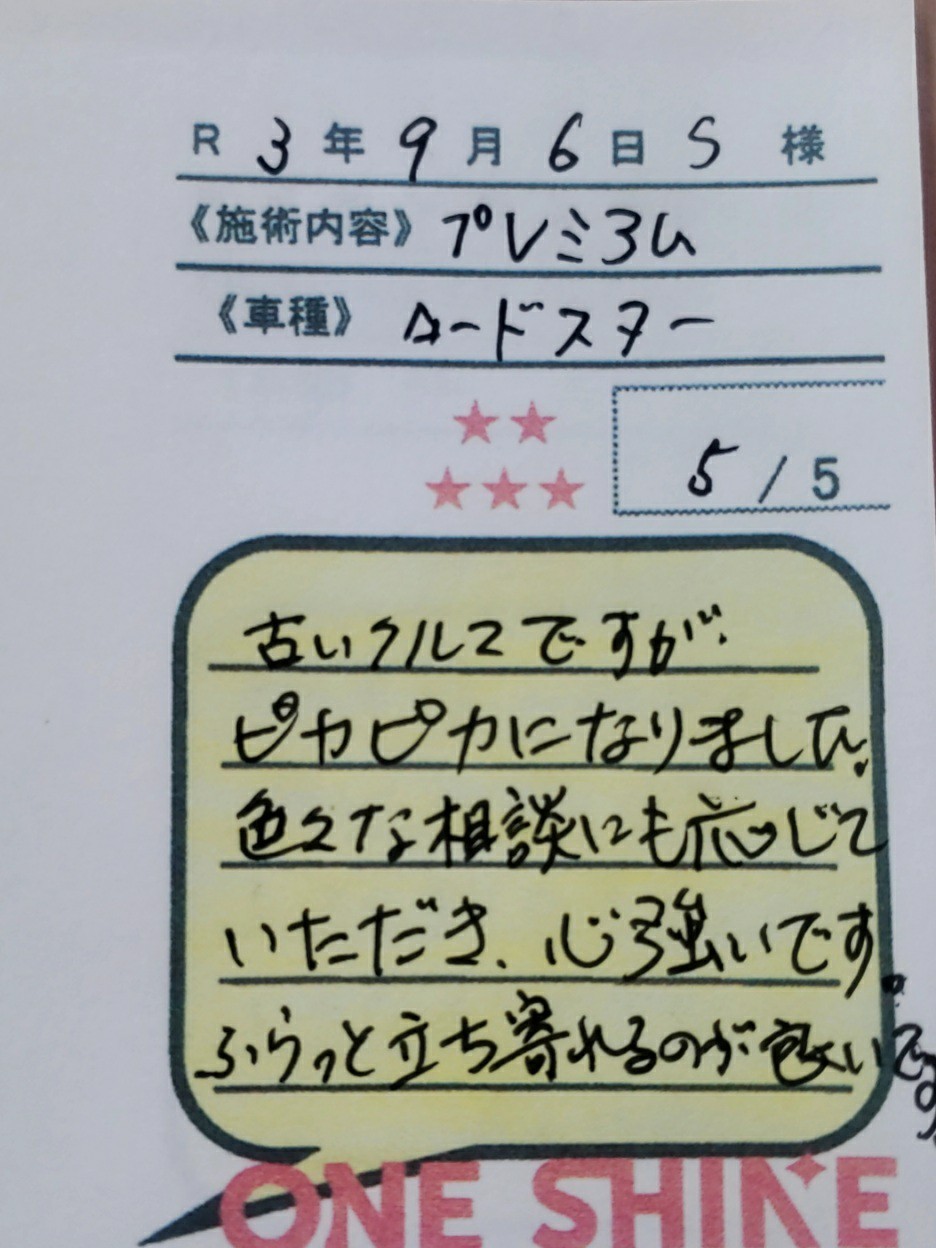 R 3 年 9 月 6 日 S 様
《施術内容》 プレミアム
《車種》 ロードスター
★★
★★★
5 / 5
古いクルマですが
ピカピカになりました。
色々な相談にも応じて
いただき、心強いです。
ふらっと立ち寄れるのが良いです。
ONE SHINE